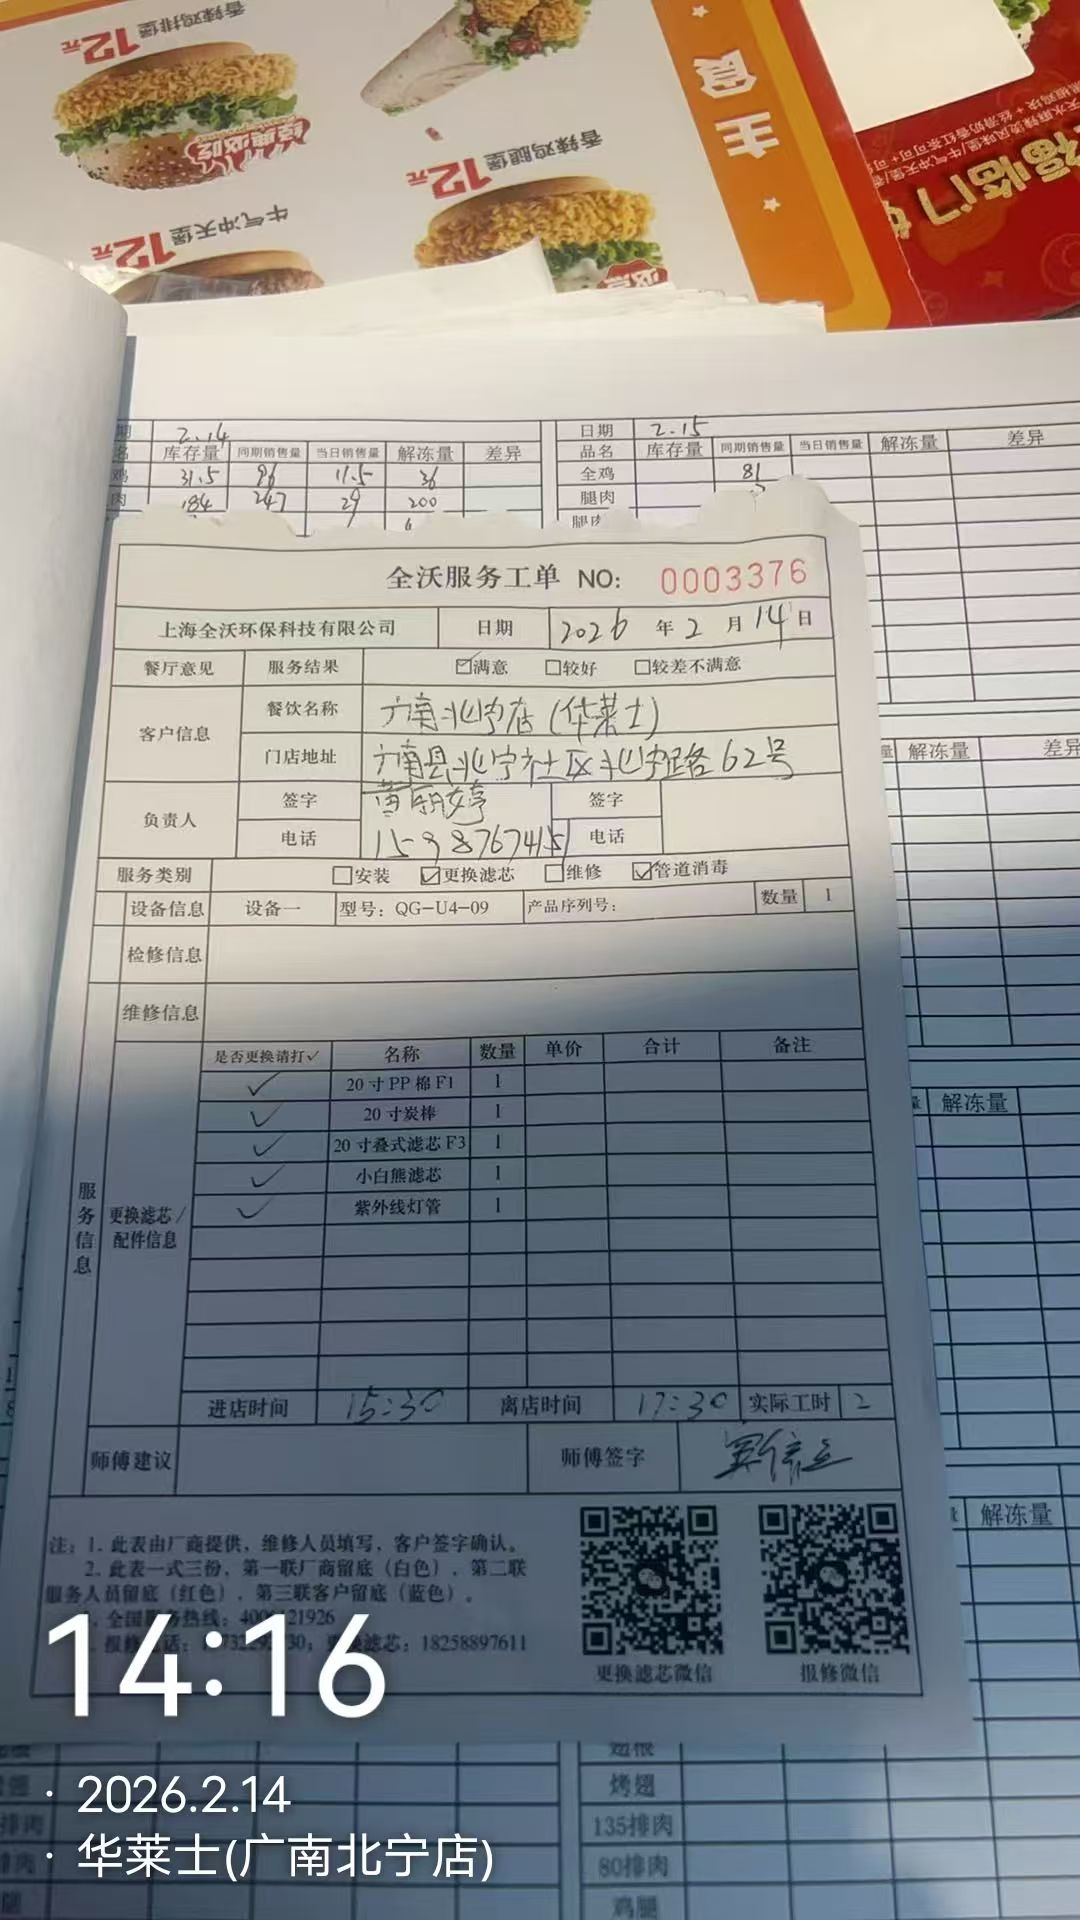 香辣鸡排堡
12元
经典必吃
主食
香辣鸡腿堡
12元
牛气冲天堡
12元
福临门
2.14
日期 2.15
库存量 同期销售量 当日销售量 解冻量 差异
品名 库存量 同期销售量 当日销售量 解冻量 差异
31.5 96 11.5 36
全鸡 81
184 247 29 200
腿肉
全沃服务工单 NO: 0003376
上海全沃环保科技有限公司 日期 2026年2月14日
餐厅意见 服务结果 ☑满意 □较好 □较差不满意
客户信息 餐饮名称 广南北宁店(华莱士)
门店地址 广南县北宁社区北宁路62号
负责人 签字 签字
电话 电话
服务类别 □安装 ☑更换滤芯 □维修 ☑管道消毒
设备信息 设备一 型号：QG-U4-09 产品序列号： 数量 1
检修信息
维修信息
服务信息
更换滤芯/配件信息
是否更换请打✓ 名称 数量 单价 合计 备注
✓ 20寸PP棉F1 1
✓ 20寸炭棒 1
✓ 20寸叠式滤芯F3 1
✓ 小白熊滤芯 1
✓ 紫外线灯管 1
进店时间 15:30 离店时间 17:30 实际工时 2
师傅建议 师傅签字
注：1. 此表由厂商提供，维修人员填写，客户签字确认。
2. 此表一式三份，第一联厂商留底（白色），第二联
服务人员留底（红色），第三联客户留底（蓝色）。
更换滤芯：18258897611
更换滤芯微信 报修微信
解冻量 差异
解冻量
解冻量
翅根
烤翅
135排肉
80排肉
鸡腿
14:16
· 2026.2.14
· 华莱士(广南北宁店)